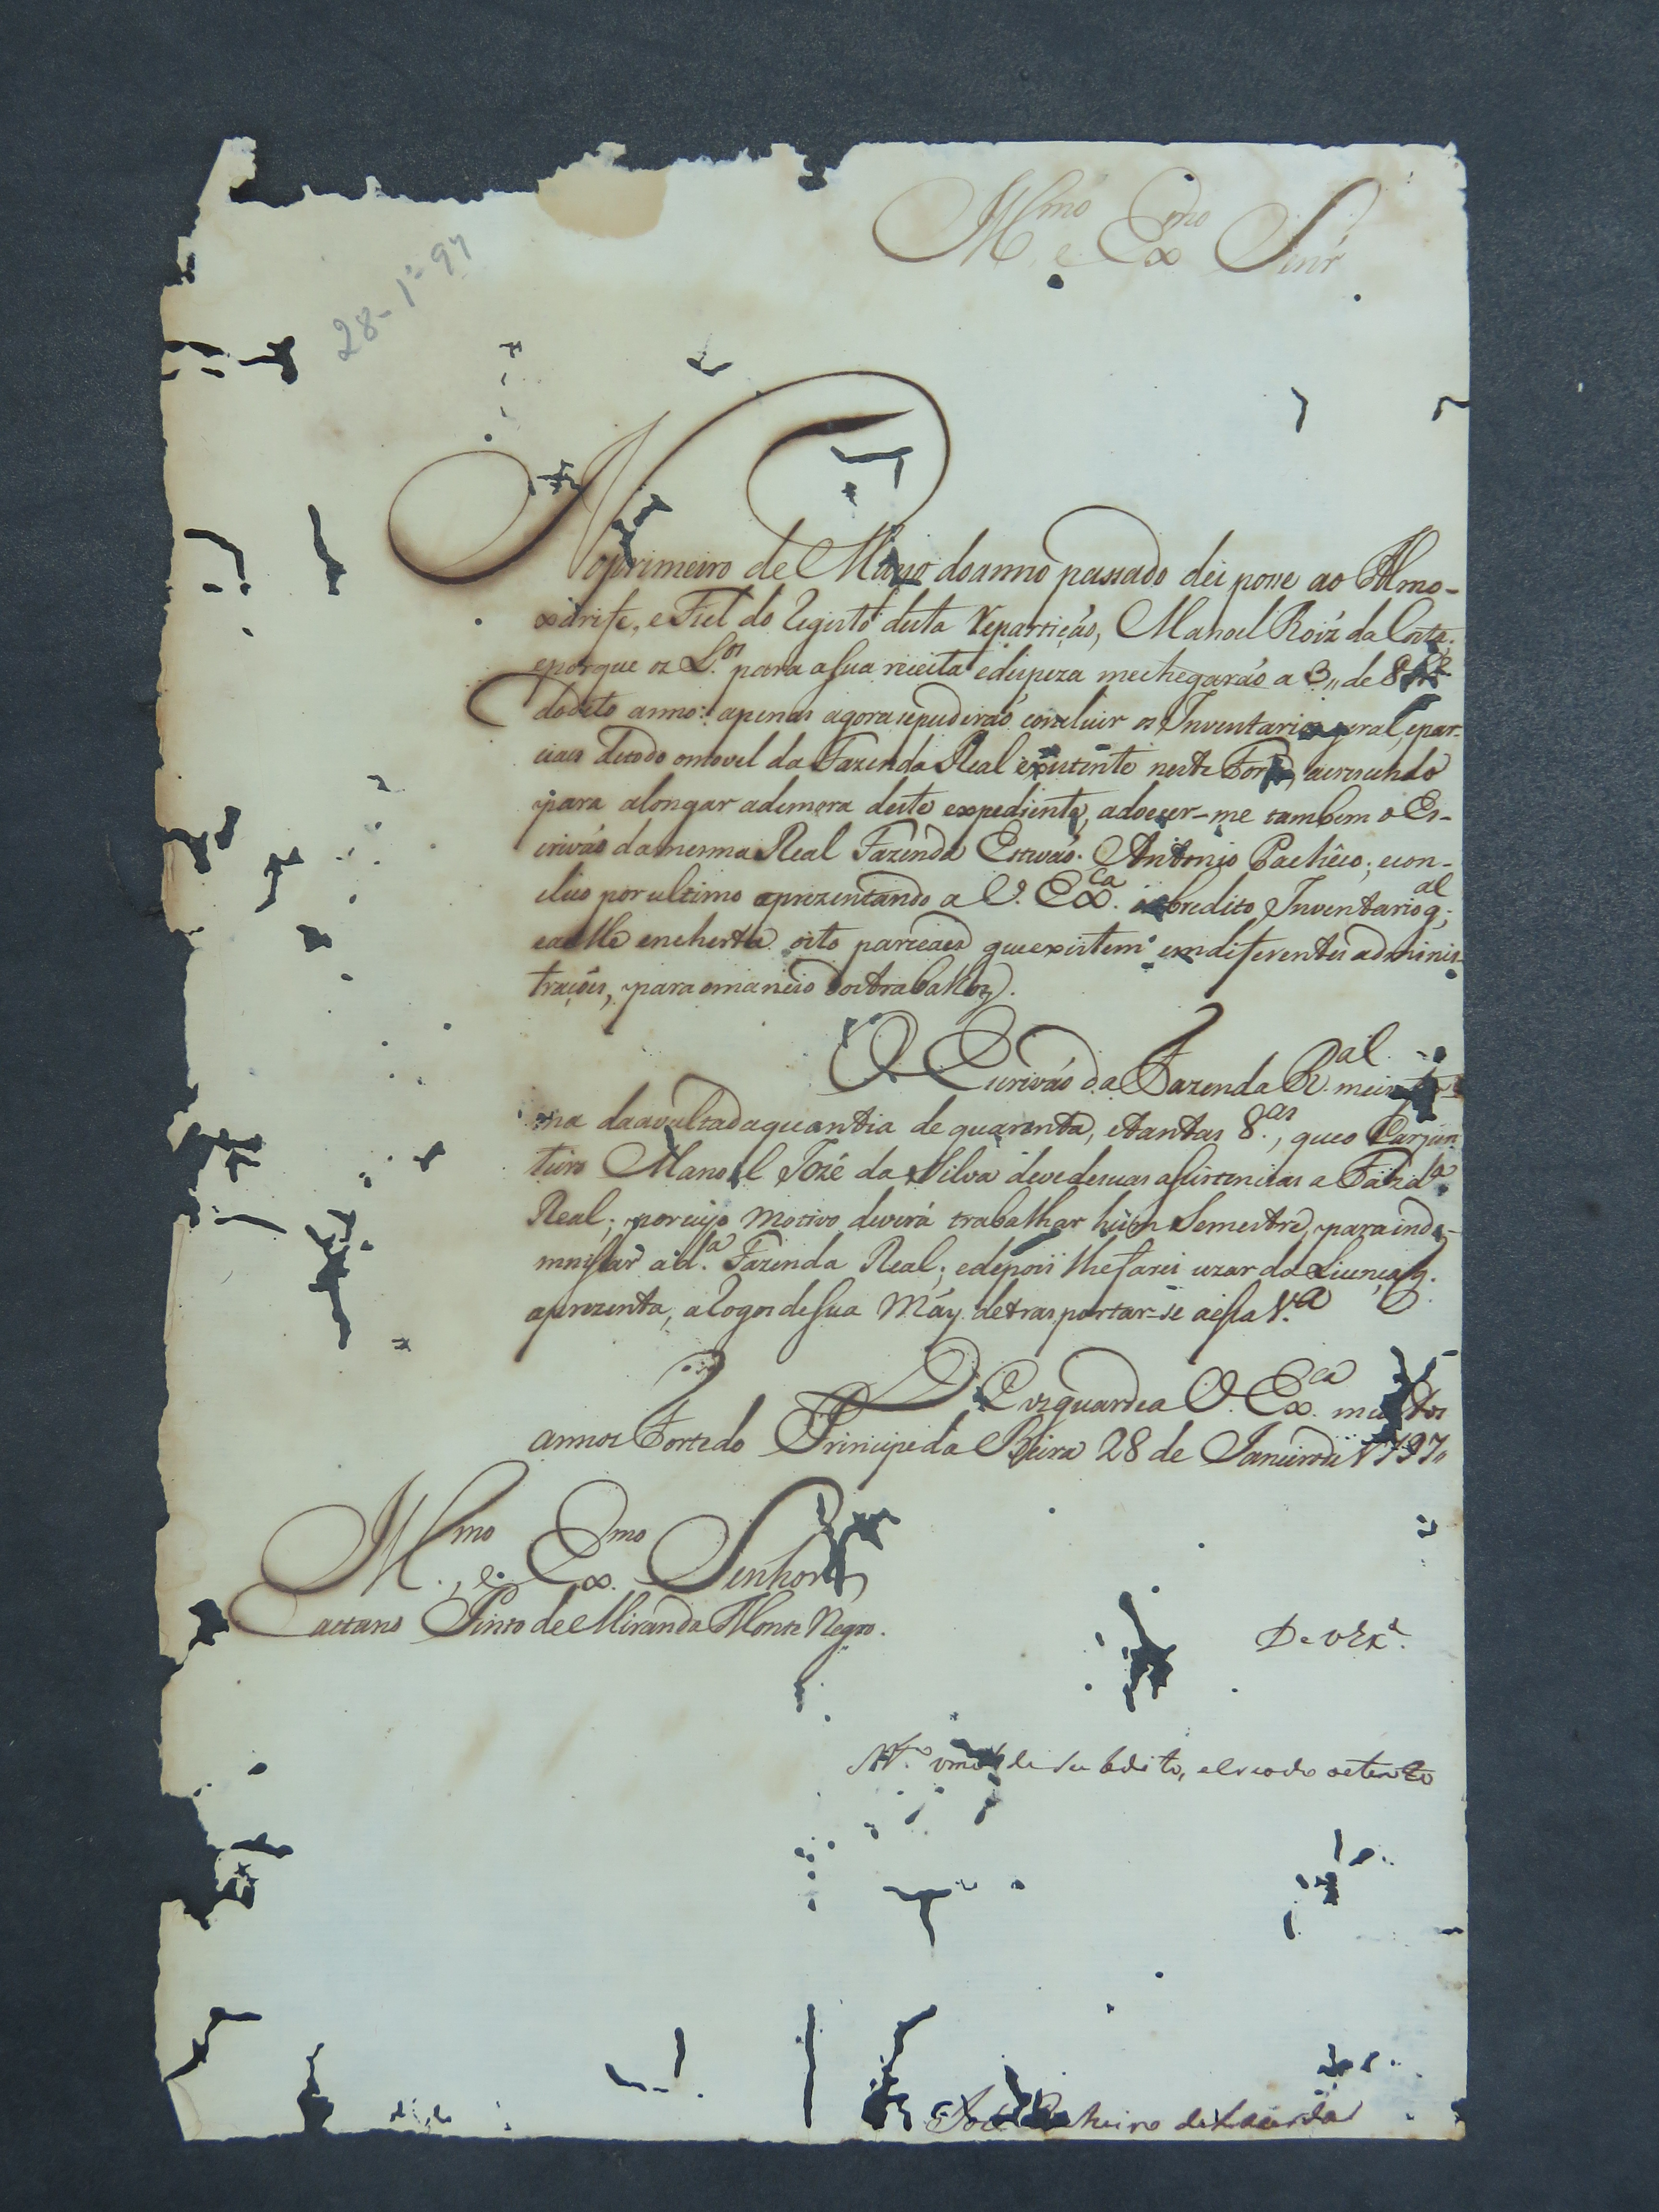 Ill.mo e Ex.mo Snr.
28-1º-97
No primeiro de Março do anno passado dei posse ao Almo-
xarife, e Fiel do Registo desta Repartição, Manoel Roiz da Costa;
e porque os L.os para a sua receita e despeza me chegarão a 3,, de
do dito anno: apenas agora se puderão concluir os Inventarios geral, e par-
ciaes de todo o movel da Fazenda Real existente neste Forte, acrescendo
para alongar a demora deste expediente, adoecer-me tambem o Es-
crivão da mesma Real Fazenda Estevão Antonio Pachêco; e con-
cluo por ultimo aprezentando a V. Ex.ca o sobredito Inventario g.al
e a elle encherta oito parciaes que existem em diferentes adminis-
trações, para o maneio dos trabalhos.
O Escrivão da Fazenda R.al me
ma da avultada quantia de quarenta, e tantas 8.as, que o Carpin-
teiro Manoel Jozé da Silva deve de suas assistencias a Fazd.a
Real; por cujo motivo deverá trabalhar hum Semestre, para inde-
mnisar a d.a Fazenda Real; e depois lhe farei uzar da Licença q.
aprezenta, a rogos de sua Máy de trasportar-se a essa V.a
D.s guarde a V. Ex.ca muitos
annos Forte do Principe da Beira 28 de Janeiro de 1797,,
Ill.mo, e Ex.mo Senhor
Caetano Pinto de Miranda Monte Negro.
De V Ex.a
M.to subdito, e criado attento
de Lacerda